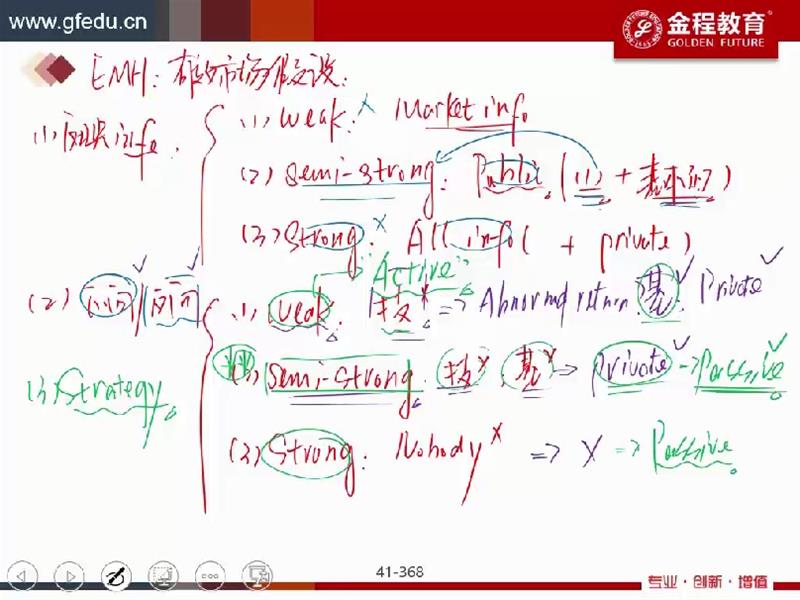 www.gfedu.cn
金程教育
GOLDEN FUTURE
EMH: 有效市场假设:
(1) 反映 info.
(1) Weak: × Market info
(2) Semi-strong: Public ((1) + 基本面)
(3) Strong: × All info ( + private)
"Active"
(2)
(1) Weak 技× => Abnormal return. 基✓ Private ✓
(3) Strategy
Semi-strong. 技× 基× => private ✓ → Passive ✓
(3) Strong: Nobody × => × => Passive.
41-368
专业·创新·增值